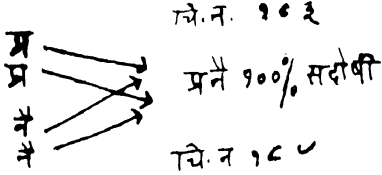 चि. न. १८३
प्र
प्र
प्रनै १००% सदोषी
नै
नै
चि. न १८४